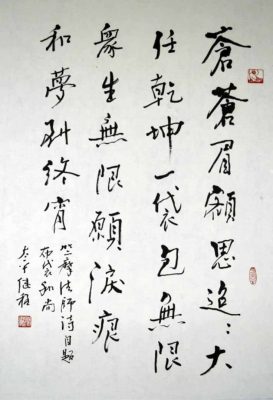 蒼蒼眉額思迢〻大
任乾坤一袋包無限
衆生無限願淚痕
和夢到終宵
竺摩法師詩自題
布袋和尚
太平继程